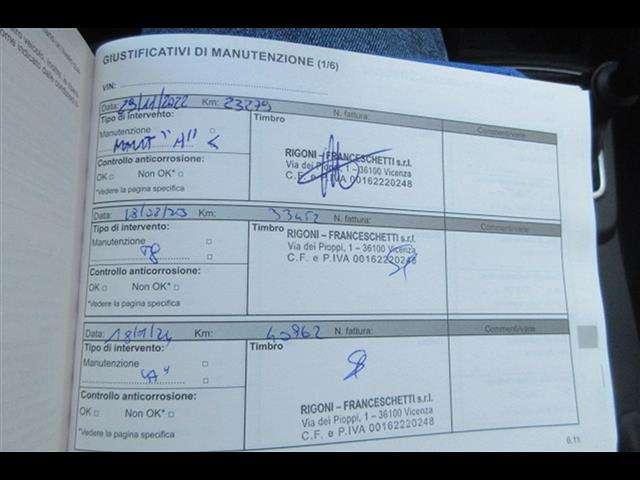 GIUSTIFICATIVI DI MANUTENZIONE (1/6)
VIN:
Data: 29/11/2022 Km: 23279 N. fattura: Commenti/varie
Tipo di intervento: Timbro
Manutenzione
"A"
RIGONI – FRANCESCHETTI s.r.l.
Via dei Pioppi, 1 – 36100 Vicenza
C.F. e P.IVA 00162220248
Controllo anticorrosione:
OK Non OK*
*Vedere la pagina specifica
Data: Km: 33452 N. fattura: Commenti/varie
Tipo di intervento: Timbro
Manutenzione
RIGONI – FRANCESCHETTI s.r.l.
Via dei Pioppi, 1 – 36100 Vicenza
C.F. e P.IVA 00162220248
Controllo anticorrosione:
OK Non OK*
*Vedere la pagina specifica
Data: 18/1/24 Km: 40962 N. fattura: Commenti/varie
Tipo di intervento: Timbro
Manutenzione
"A"
RIGONI – FRANCESCHETTI s.r.l.
Via dei Pioppi, 1 – 36100 Vicenza
C.F. e P.IVA 00162220248
Controllo anticorrosione:
OK Non OK*
*Vedere la pagina specifica
6.11